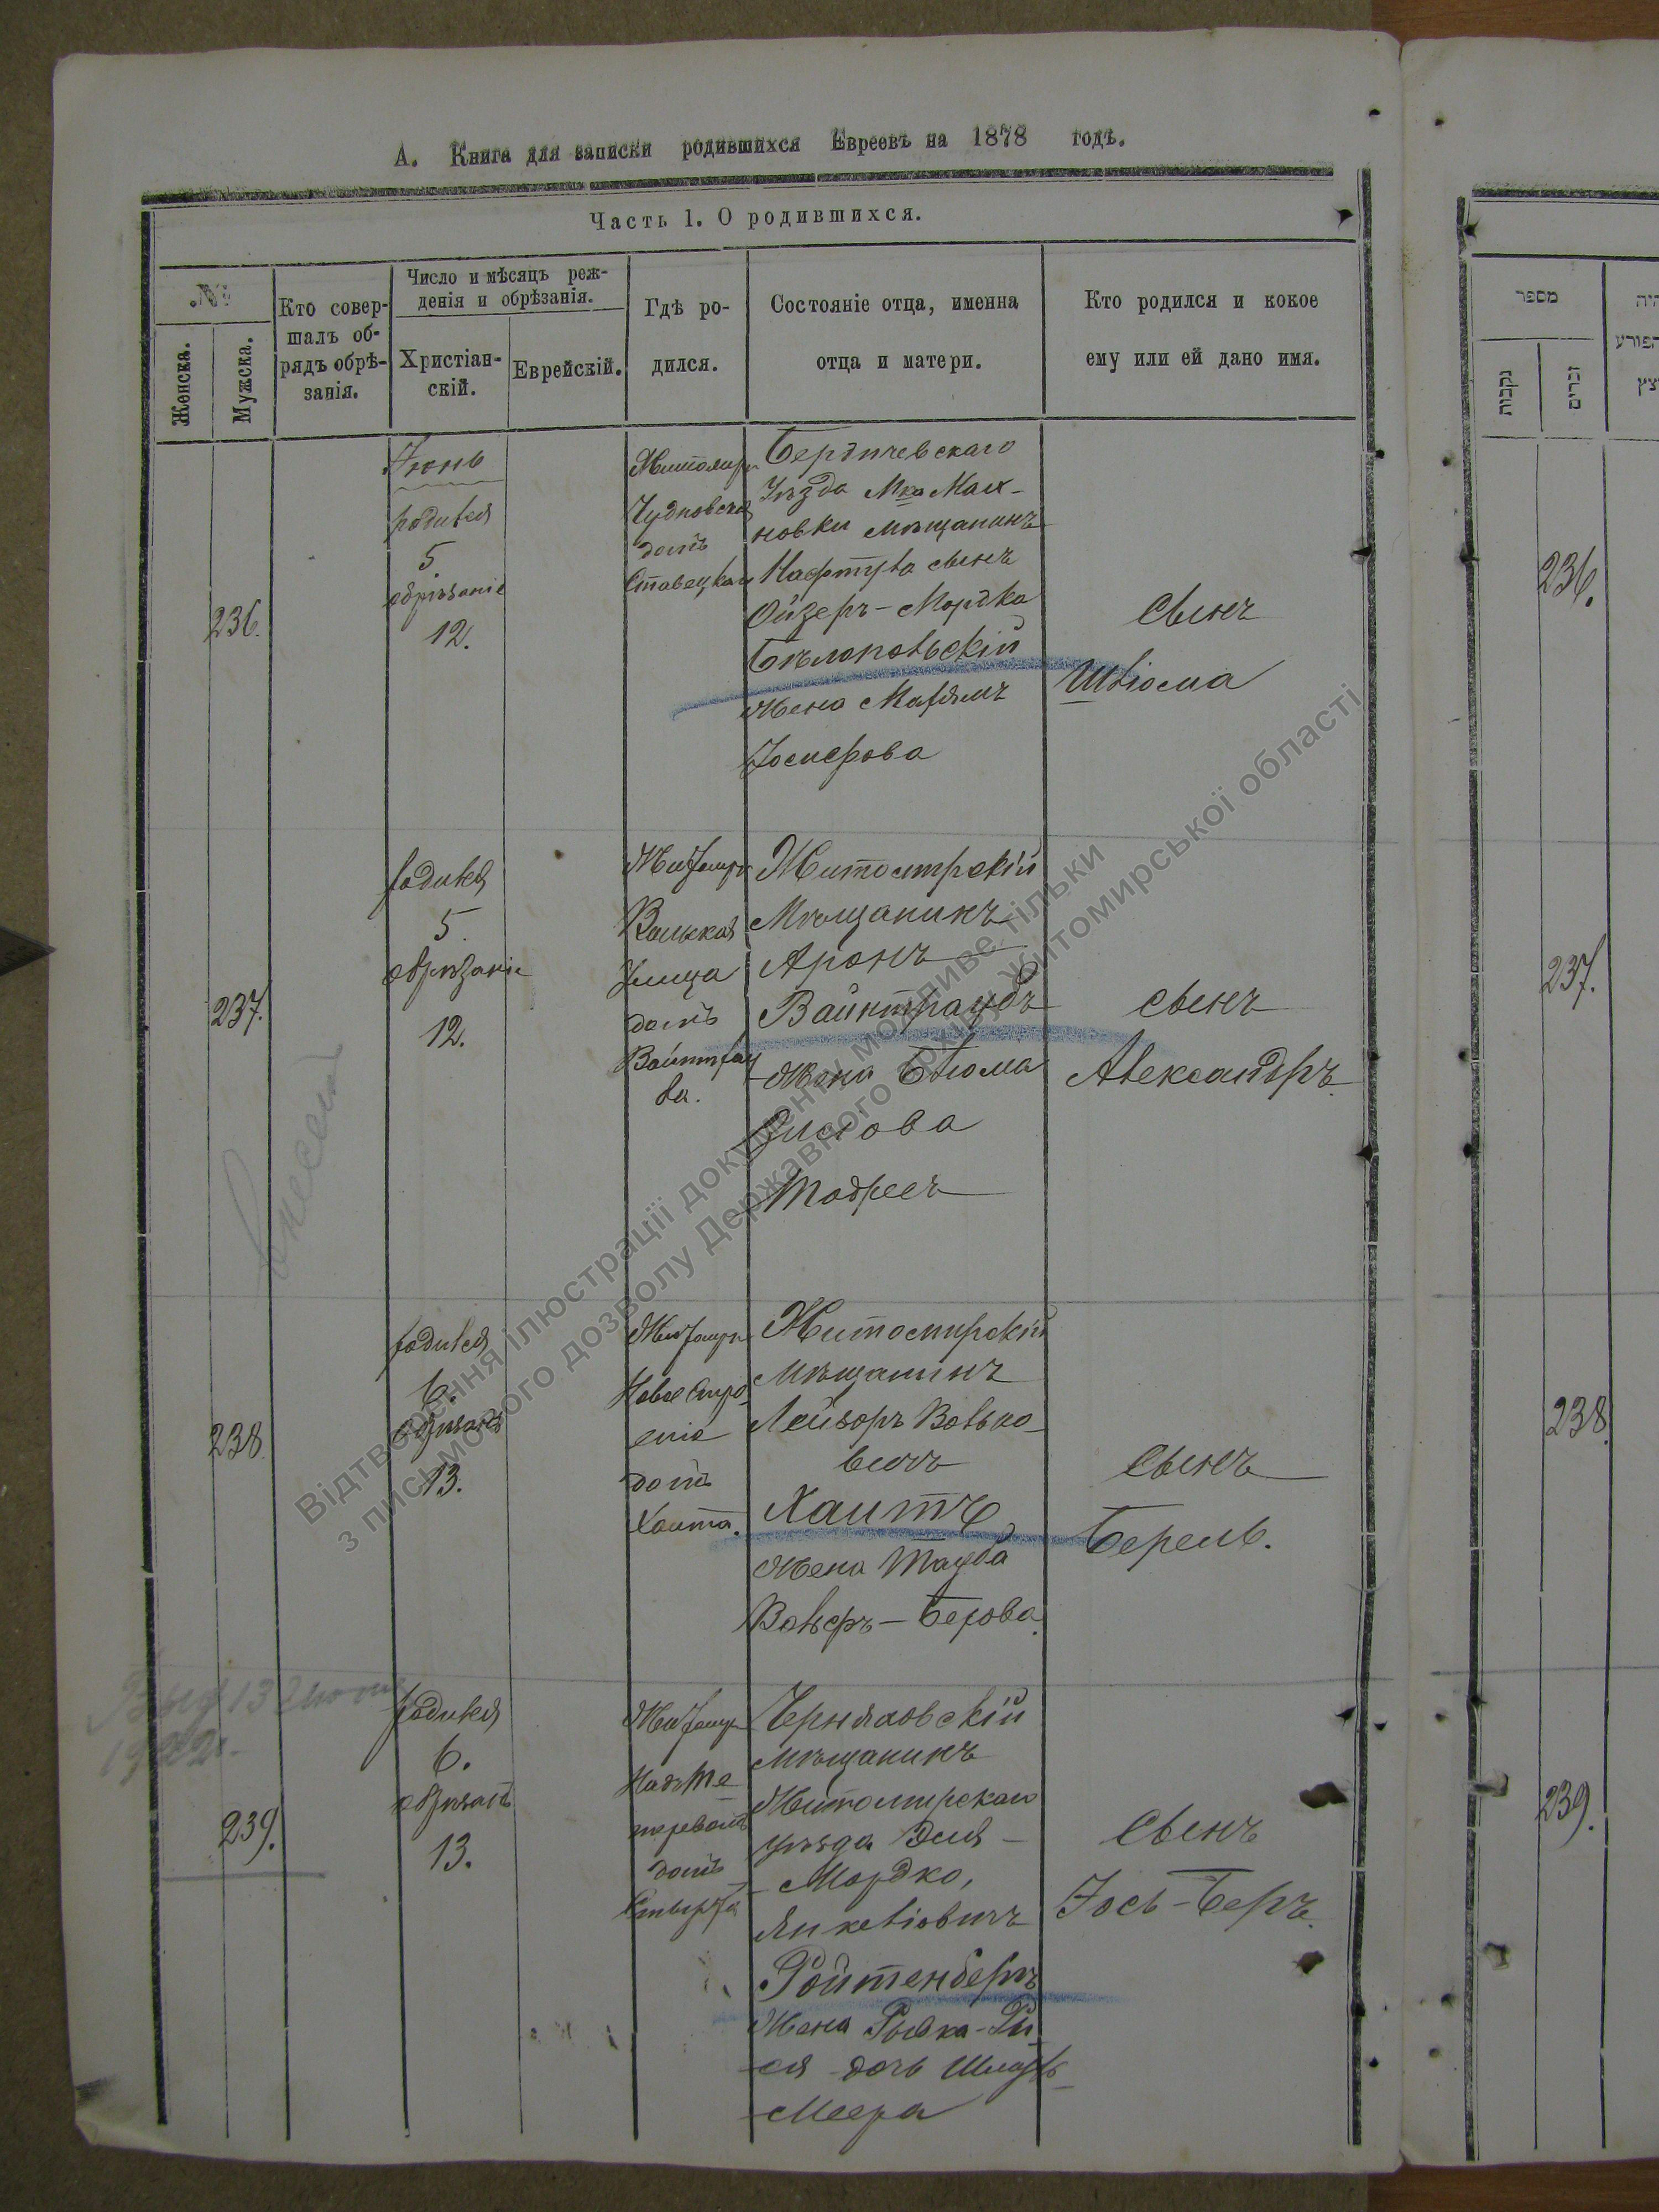 А. Книга для записки родившихся Евреевъ на 1878 годъ.
Часть 1. О родившихся.
№
Женска.
Мужска.
Кто совер-
шалъ об-
рядъ обрѣ-
занія.
Число и мѣсяцъ реж-
денія и обрѣзанія.
Христіан-
скій.
Еврейскій.
Гдѣ ро-
дился.
Состояніе отца, именна
отца и матери.
Кто родился и кокое
ему или ей дано имя.
236.
Іюнь
родился
5
обрѣзаніе
12.
Житомиръ
Чудновская
домъ
Ставецкаго
Бердичевскаго
Уѣзда Мка Мах-
новки мѣщанинъ
Нафтула сынъ
Ойзеръ-Мордка
Бѣлопольскій
жена Марьямъ
Іосифова
Сынъ
Шліома
237.
родился
5
обрѣзаніе
12.
Житомиръ
Вильская
Улица
домъ
Житомирскій
Мѣщанинъ
Аронъ
Вайнтраубъ
жена Блюма
Тодресъ
сынъ
Александръ.
238
родился
6.
обрѣзанъ
13.
Житомиръ
Новое Стро-
еніе
домъ
Хаита.
Житомирскій
мѣщанинъ
Лейзоръ Волько-
вичъ
Хаитъ
жена Тауба
Вольфъ-Берова.
Сынъ
Берель.
239.
родился
6.
обрѣзанъ
13.
Житомиръ
Надъ Те-
теревомъ
домъ
Черняховскій
мѣщанинъ
Житомирскаго
уѣзда Эля-
Мордко,
Янкеліовичъ
Ройтенбергъ
Жена Рывка-Рей-
ся дочь Шмуль-
Меера
Сынъ
Іось-Беръ.
מספר
נקבות
זכרים
236.
237.
238.
239.
Відтворення ілюстрації документу можливе тільки
з письмового дозволу Державного архіву Житомирської області